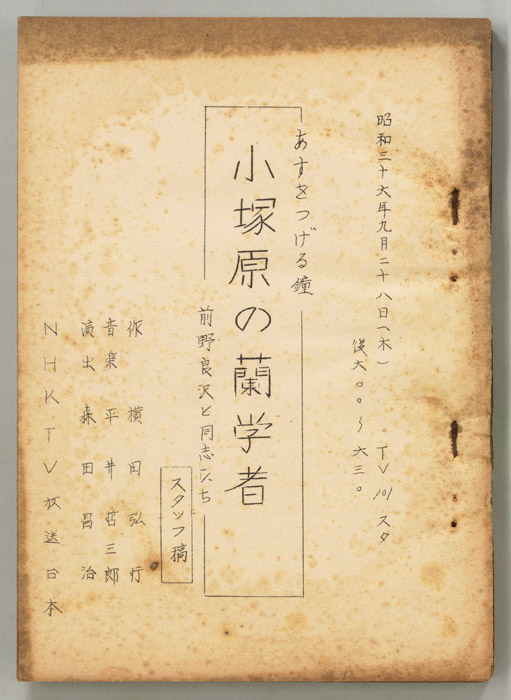 昭和三十六年九月二十八日(木)
後六〇〇~六三〇
TV101スタ
あすをつげる鐘
小塚原の蘭学者
前野良沢と同志たち
スタッフ稿
作 横田弘行
音楽 平井哲三郎
演出 森田昌治
NHKTV放送台本